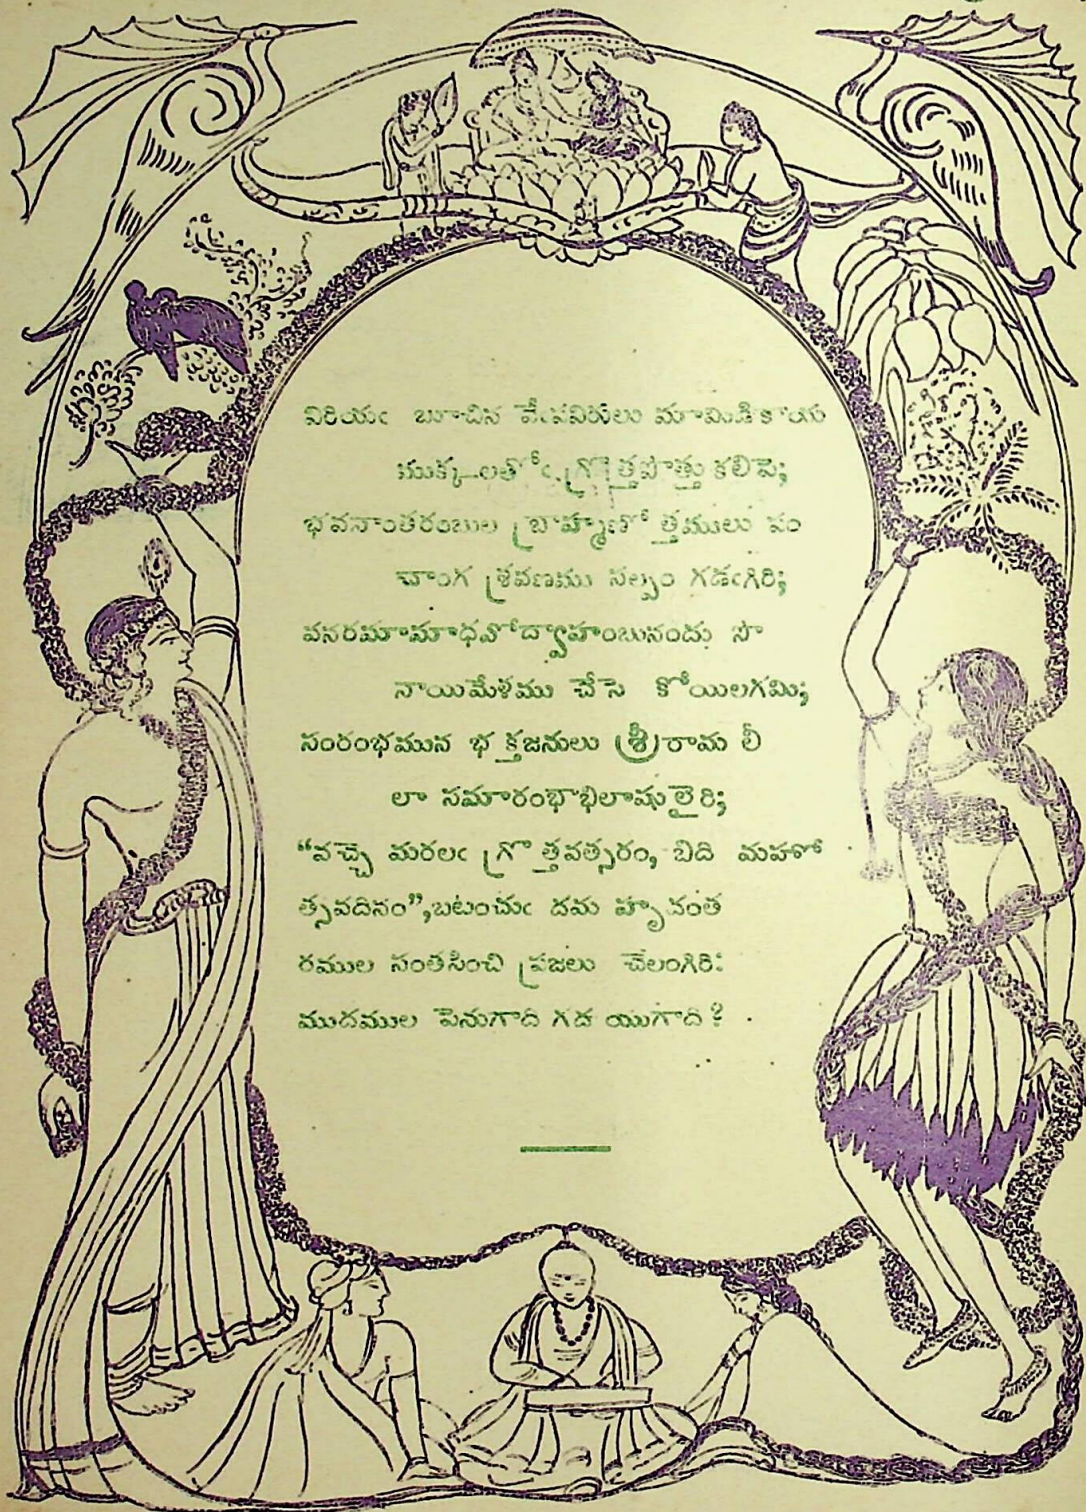 విరియఁ బూచిన వేఁపవిరులు మామిడికాయ
ముక్కలతోఁ గ్రొత్తపొత్తు కలిపె;
భవనాంతరంబుల బ్రాహ్మణోత్తములు పం
చాంగ శ్రవణము సల్పం గడఁగిరి;
వనరమామాధవోద్వాహంబునందు సొ
నాయిమేళము చేసె కోయిలగమి;
సంరంభమున భక్తజనులు శ్రీరామ లీ
లా సమారంభాభిలాషులైరి;
“వచ్చె మరలఁ గ్రొత్తవత్సరం, బిది మహో
త్సవదినం”,బటంచుఁ దమ హృదంత
రముల సంతసించి ప్రజలు చెలంగిరి:
ముదముల పెనుగాది గద యుగాది?